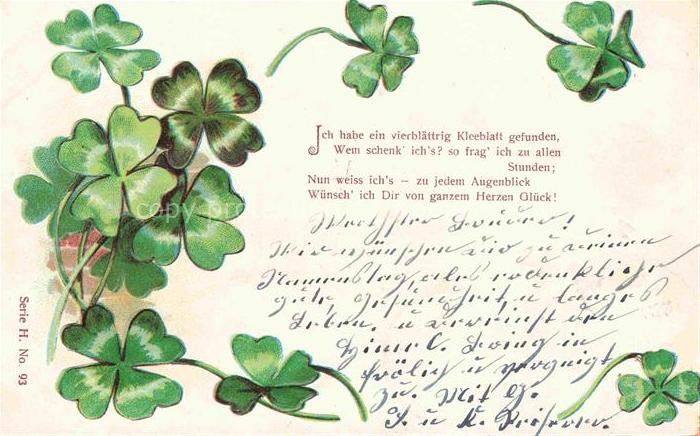 Ich habe ein vierblättrig Kleeblatt gefunden,
Wem schenk' ich's? so frag' ich zu allen
Stunden;
Nun weiss ich's — zu jedem Augenblick
Wünsch' ich Dir von ganzem Herzen Glück!
Werthster
Wir wünschen dir zu deinem
Namenstag, alles
gute, Gesundheit u langes
Leben. u dereinst den
Himel.
frölich u vergnügt
zu. Mit
J. u K.
Serie H. No. 93
copy